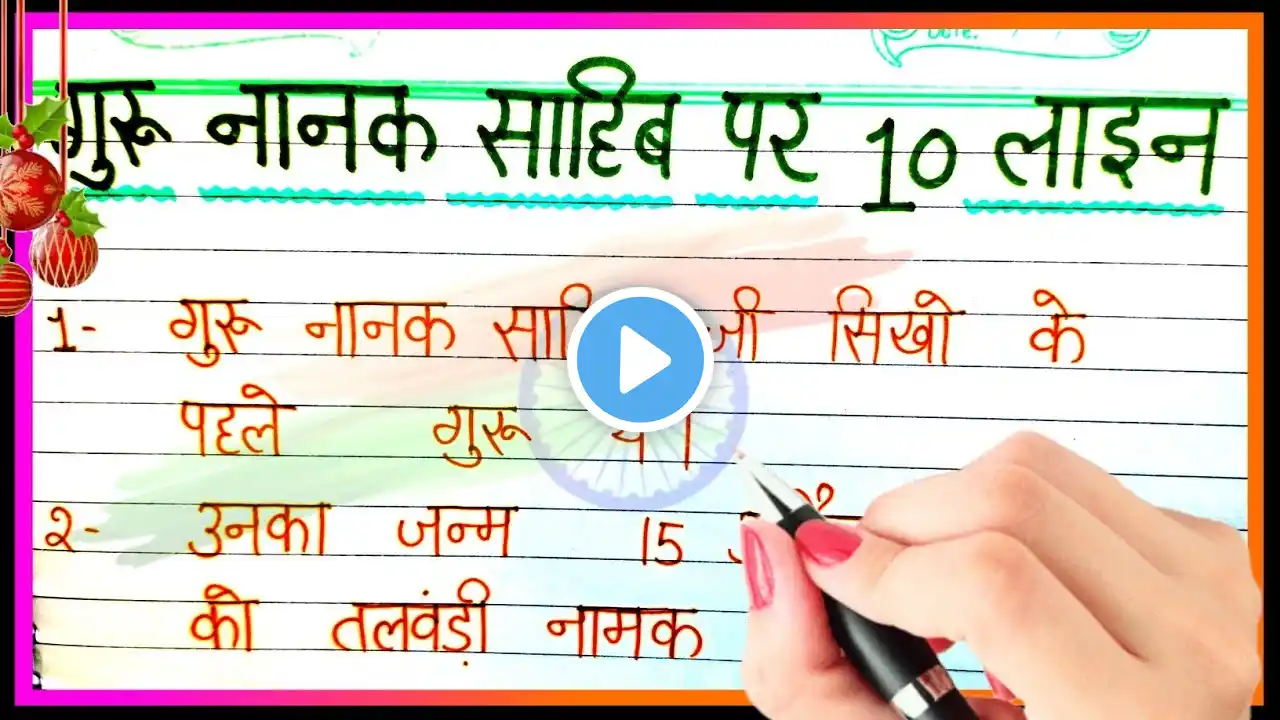 Date. / /
गुरू नानक साहिब पर 10 लाइन
1- गुरू नानक जी सिखो के
पहले गुरू थे।
2- उनका जन्म 15
को तलवंडी नामक